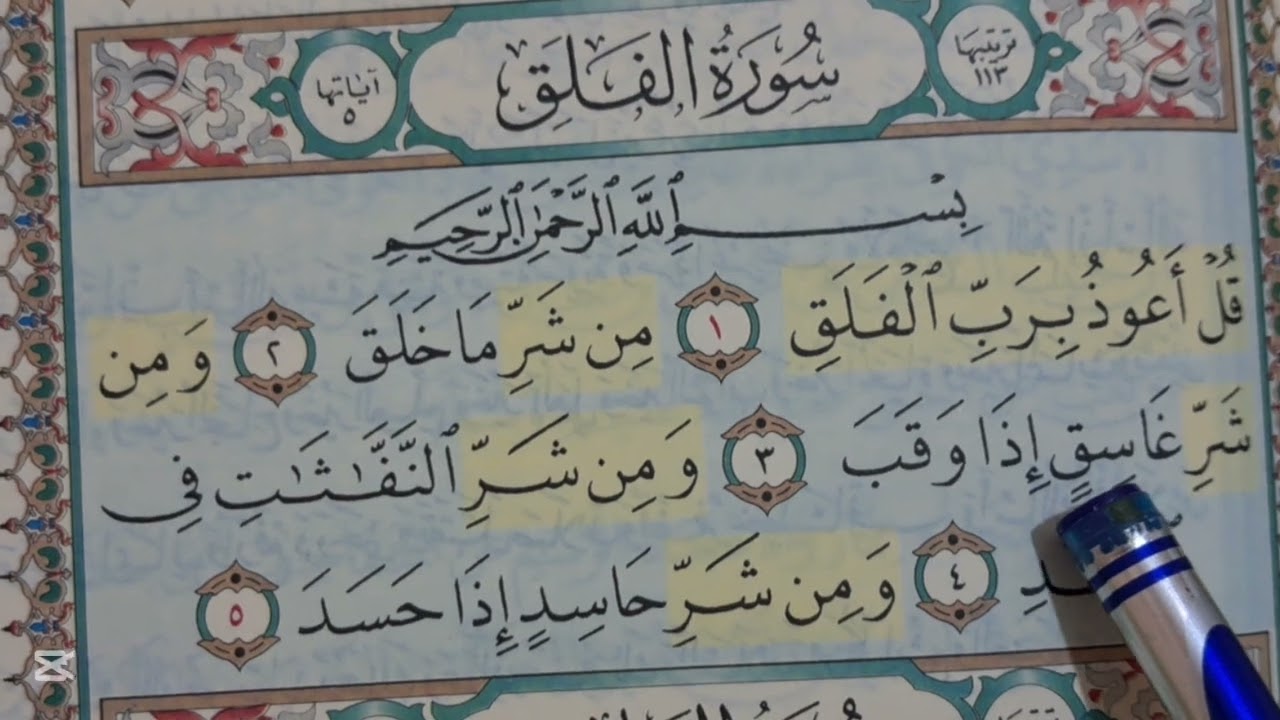 ترتيبها ١١٣
سُورَةُ الفَلَقِ
آياتها ٥
بِسْمِ ٱللَّهِ ٱلرَّحْمَٰنِ ٱلرَّحِيمِ
قُلْ أَعُوذُ بِرَبِّ ٱلْفَلَقِ ١ مِن شَرِّ مَا خَلَقَ ٢ وَمِن
شَرِّ غَاسِقٍ إِذَا وَقَبَ ٣ وَمِن شَرِّ ٱلنَّفَّٰثَٰتِ فِي
٤ وَمِن شَرِّ حَاسِدٍ إِذَا حَسَدَ ٥